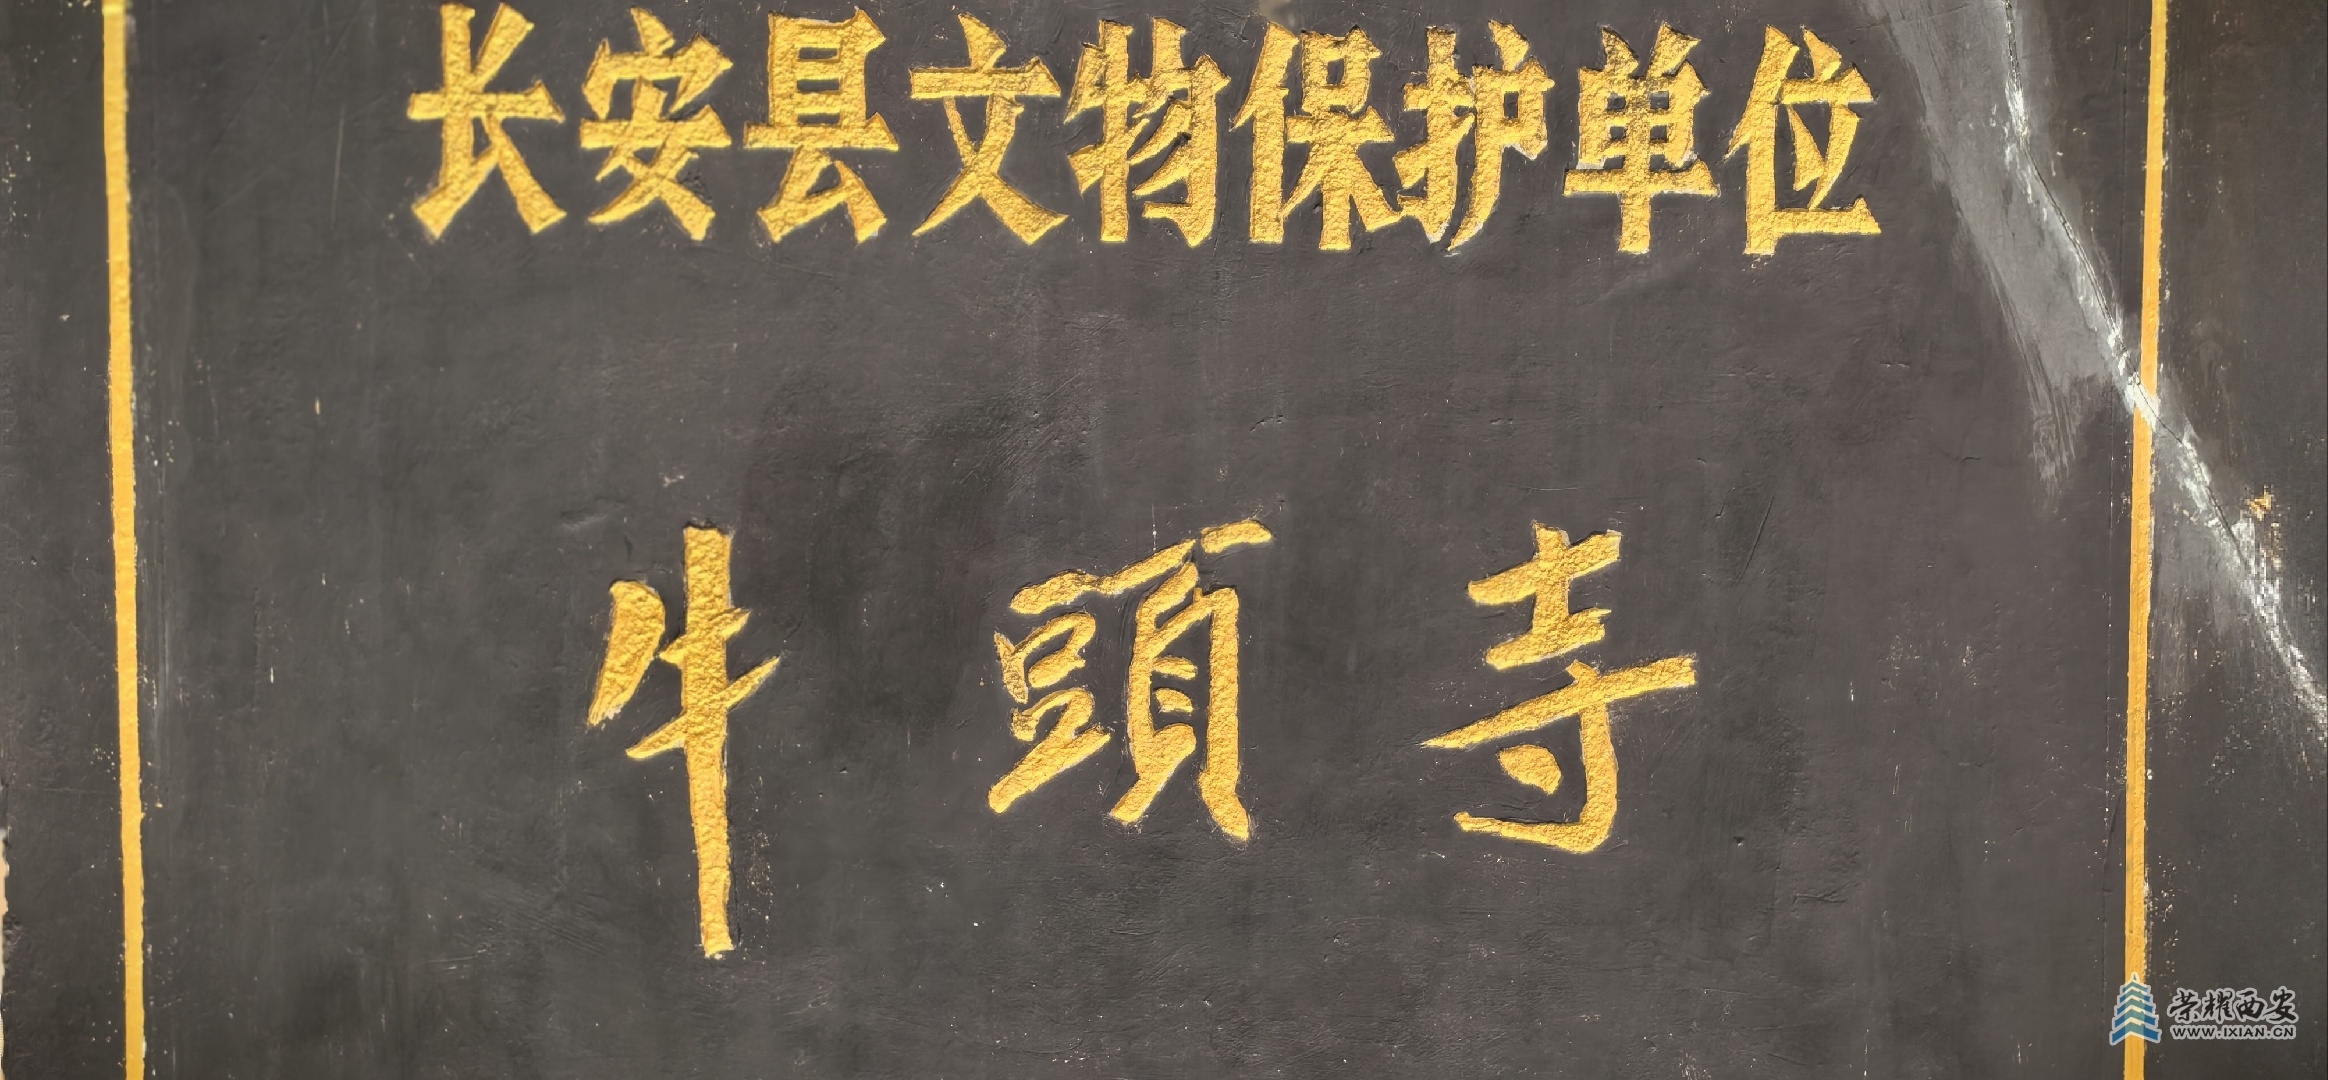 长安县文物保护单位
牛頭寺
荣耀西安
WWW.IXIAN.CN